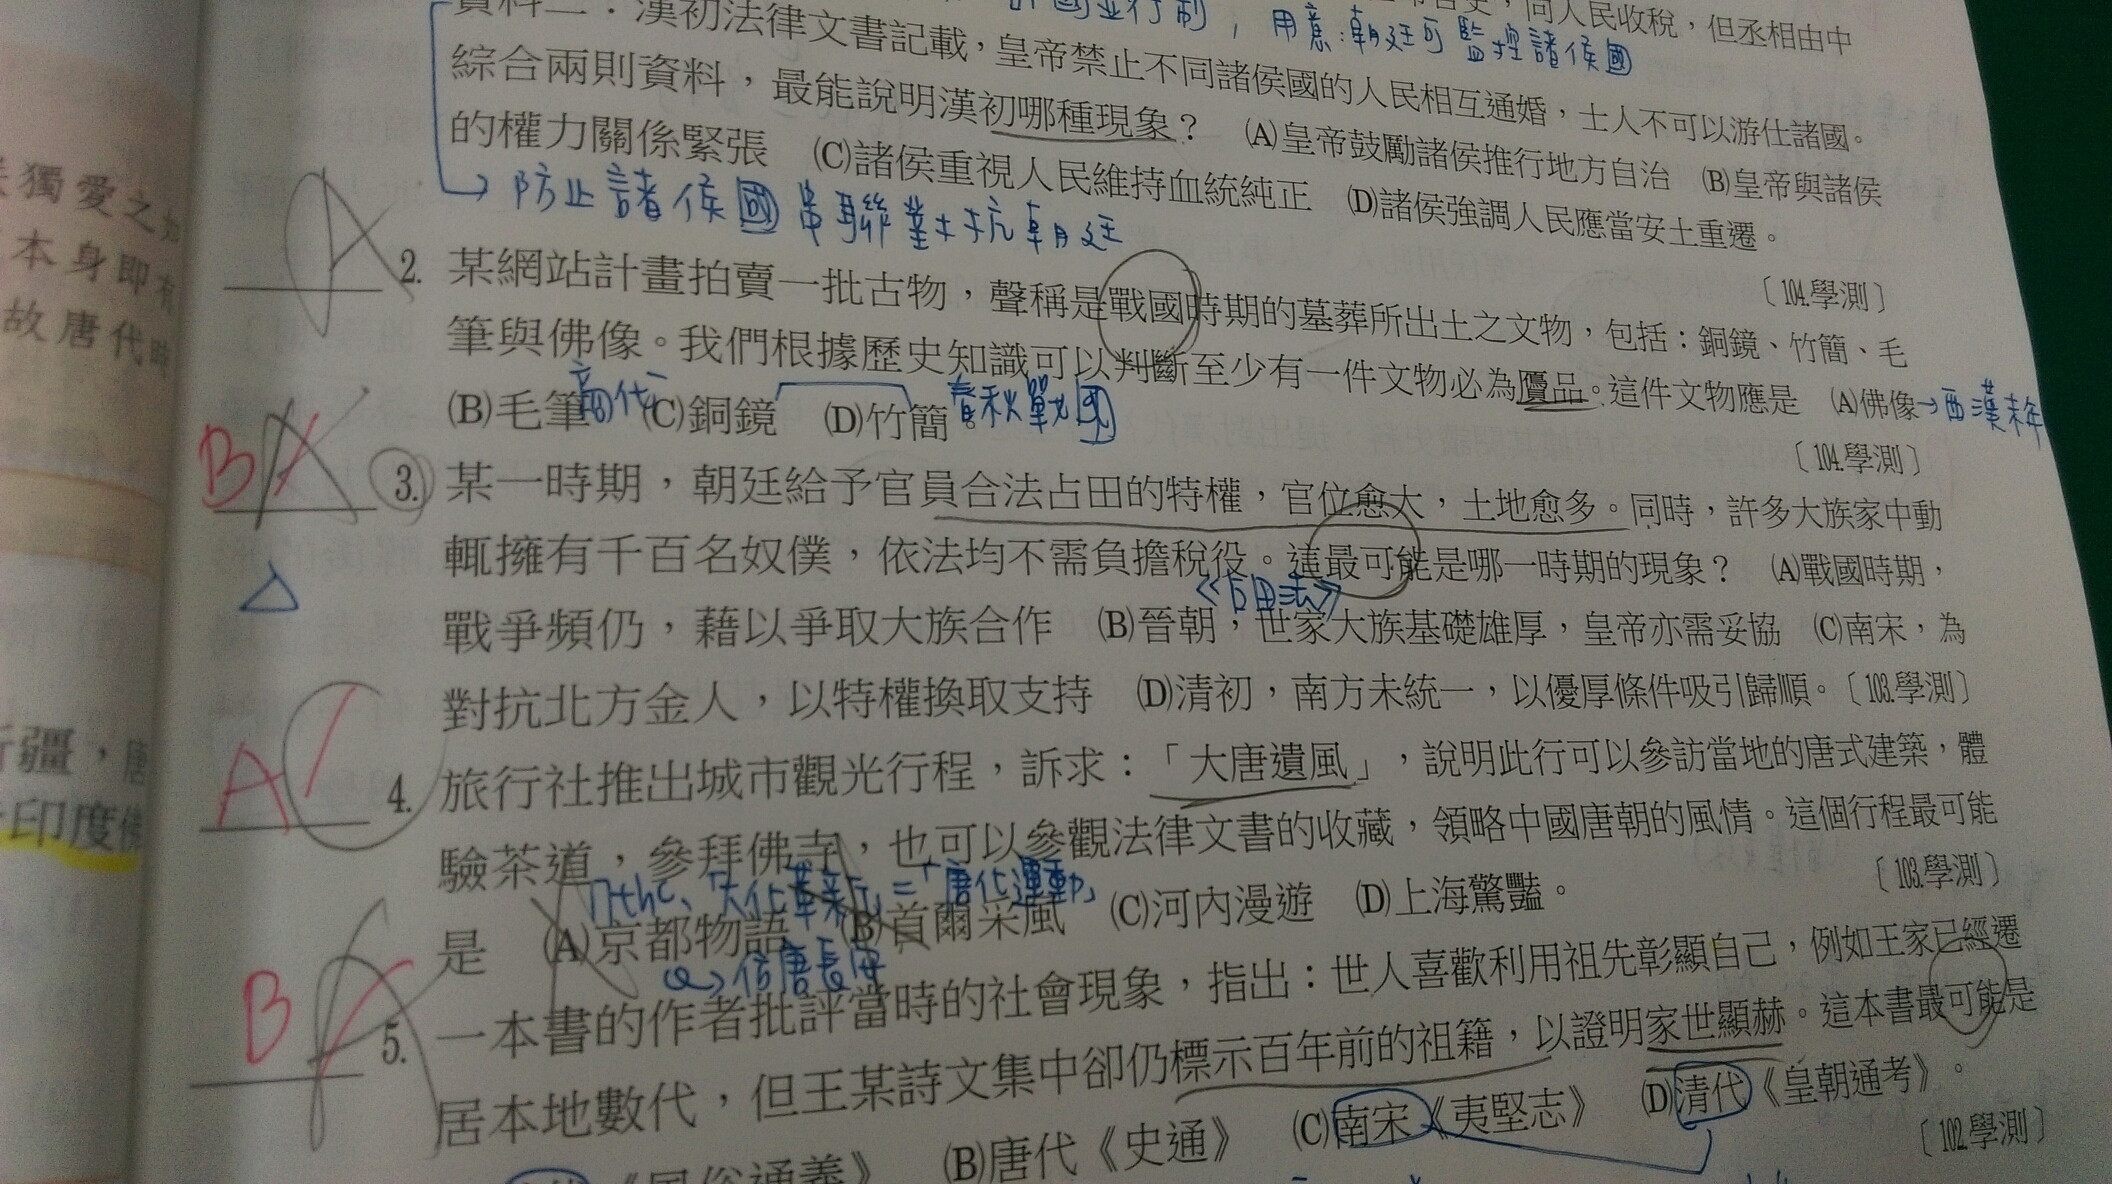 帝官吏，向人民收稅，但丞相由中
國並行制，用意：朝廷可監控諸侯國
資料二：漢初法律文書記載，皇帝禁止不同諸侯國的人民相互通婚，士人不可以游仕諸國。
綜合兩則資料，最能說明漢初哪種現象？ (A)皇帝鼓勵諸侯推行地方自治 (B)皇帝與諸侯
的權力關係緊張 (C)諸侯重視人民維持血統純正 (D)諸侯強調人民應當安土重遷。
〔104.學測〕
防止諸侯國串聯對抗朝廷
A
2. 某網站計畫拍賣一批古物，聲稱是戰國時期的墓葬所出土之文物，包括：銅鏡、竹簡、毛
筆與佛像。我們根據歷史知識可以判斷至少有一件文物必為贗品。這件文物應是 (A)佛像→西漢末年
(B)毛筆 商代 (C)銅鏡 (D)竹簡。春秋戰國
〔104.學測〕
B A
3. 某一時期，朝廷給予官員合法占田的特權，官位愈大，土地愈多。同時，許多大族家中動
輒擁有千百名奴僕，依法均不需負擔稅役。這最可能是哪一時期的現象？ (A)戰國時期，
《占田法》
戰爭頻仍，藉以爭取大族合作 (B)晉朝，世家大族基礎雄厚，皇帝亦需妥協 (C)南宋，為
對抗北方金人，以特權換取支持 (D)清初，南方未統一，以優厚條件吸引歸順。〔103.學測〕
A
4. 旅行社推出城市觀光行程，訴求：「大唐遺風」，說明此行可以參訪當地的唐式建築，體
驗茶道，參拜佛寺，也可以參觀法律文書的收藏，領略中國唐朝的風情。這個行程最可能
7thc、「大化革新」=「唐化運動」
是 (A)京都物語 (B)首爾采風 (C)河內漫遊 (D)上海驚豔。
〔103.學測〕
仿唐長安
B
5. 一本書的作者批評當時的社會現象，指出：世人喜歡利用祖先彰顯自己，例如王家已經遷
居本地數代，但王某詩文集中卻仍標示百年前的祖籍，以證明家世顯赫。這本書最可能是
《風俗通義》 (B)唐代《史通》 (C)南宋《夷堅志》 (D)清代《皇朝通考》。
〔102.學測〕
獨愛之如
本身即有
故唐代時
疆，唐
印度佛